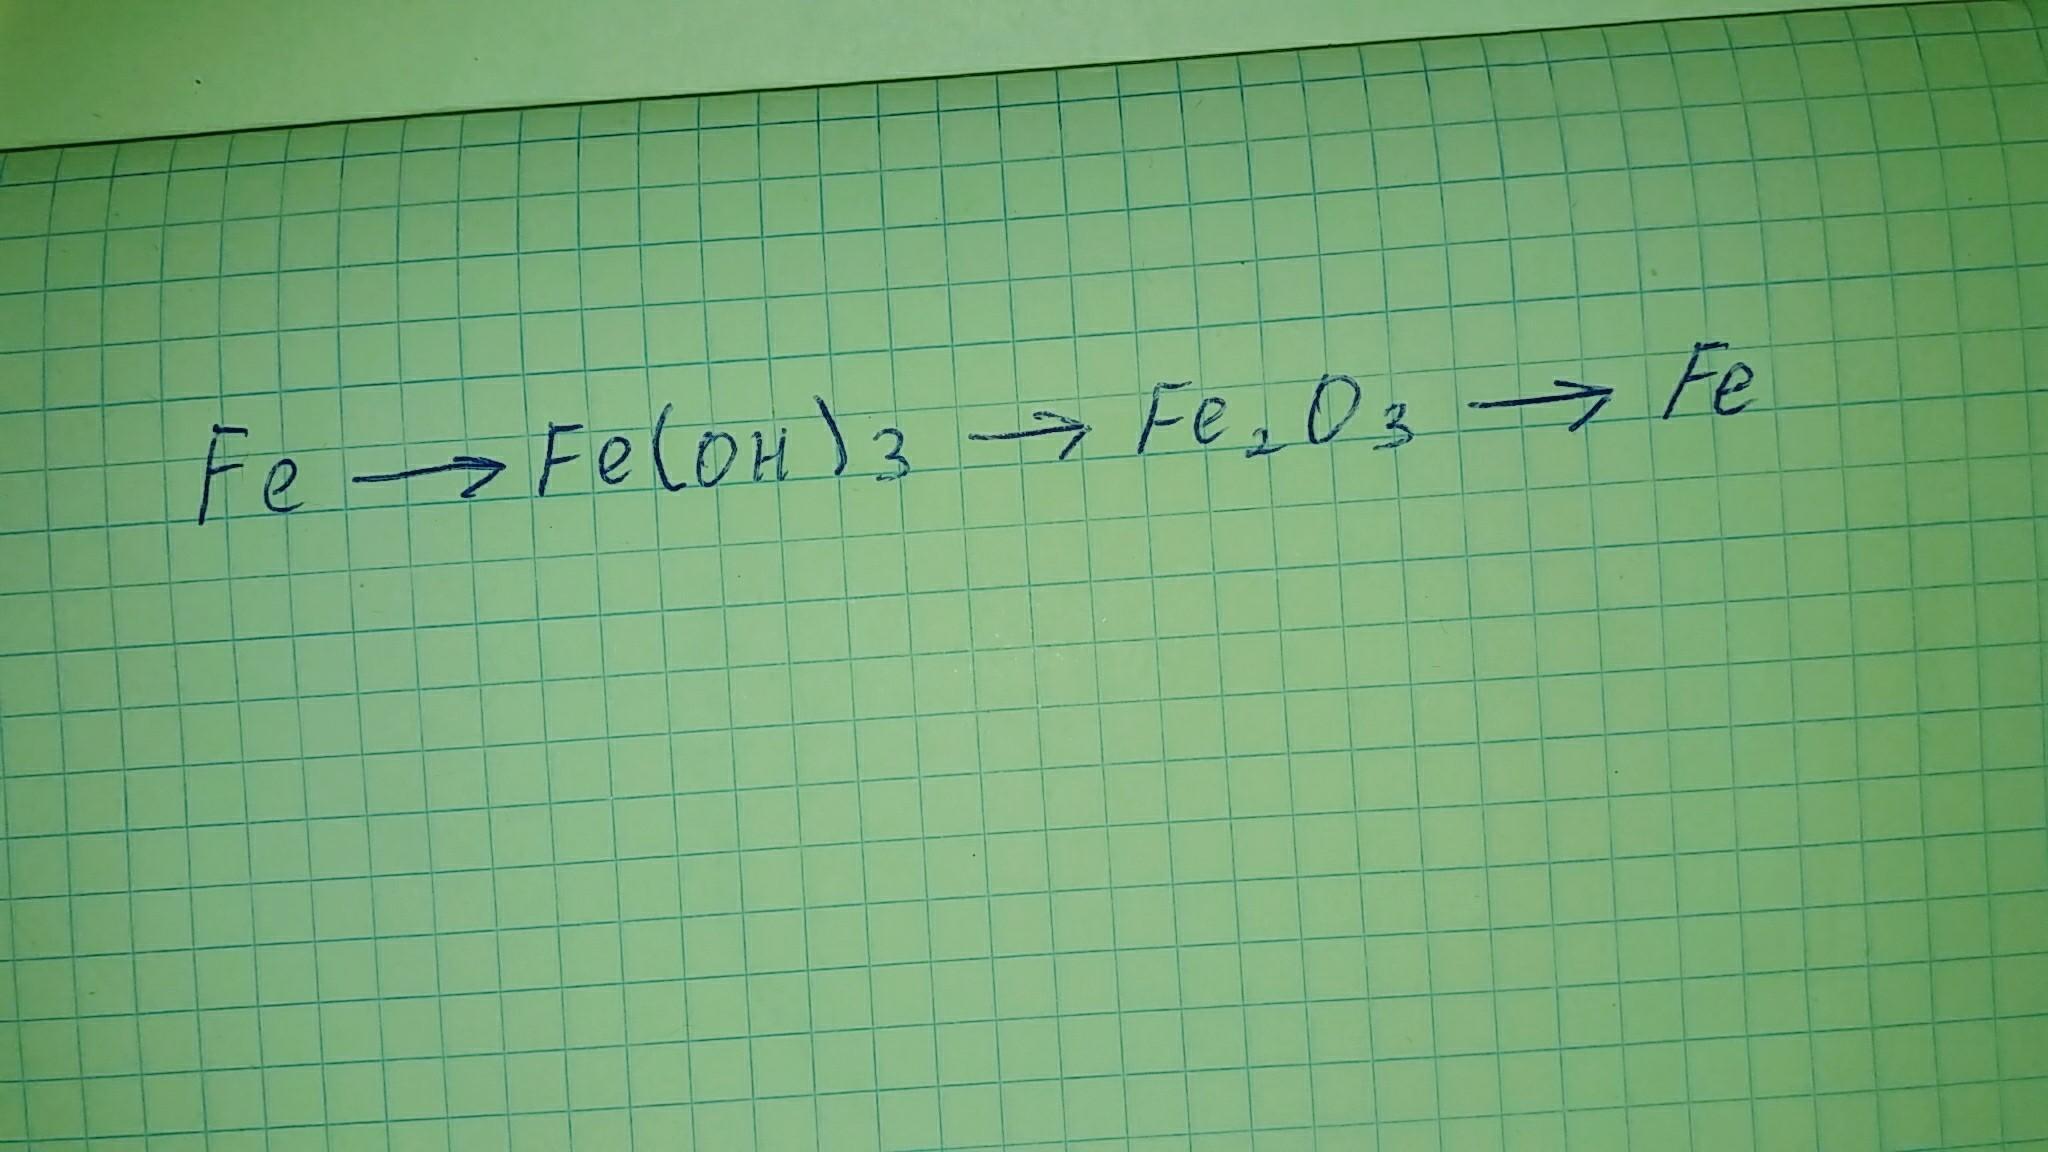 Fe → Fe(OH)3 → Fe2O3 → Fe